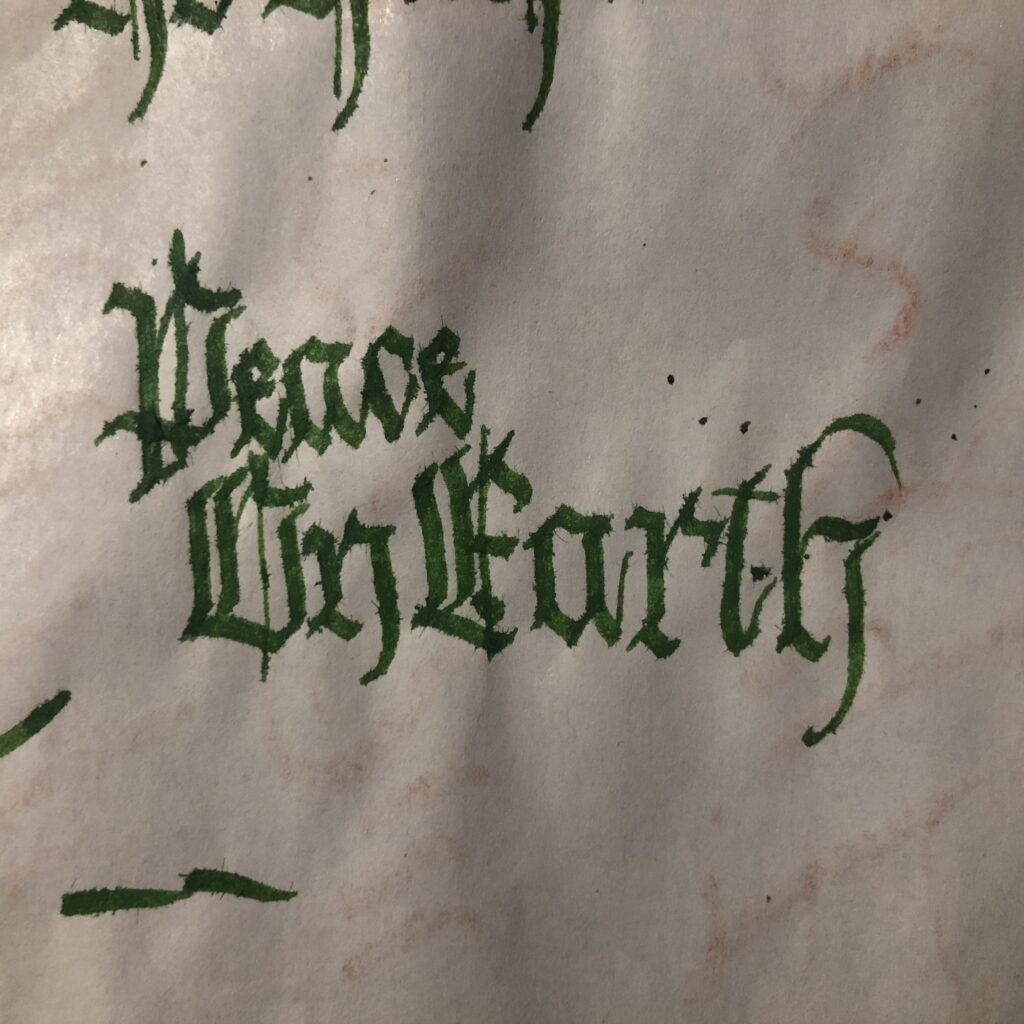 Peace
On Earth